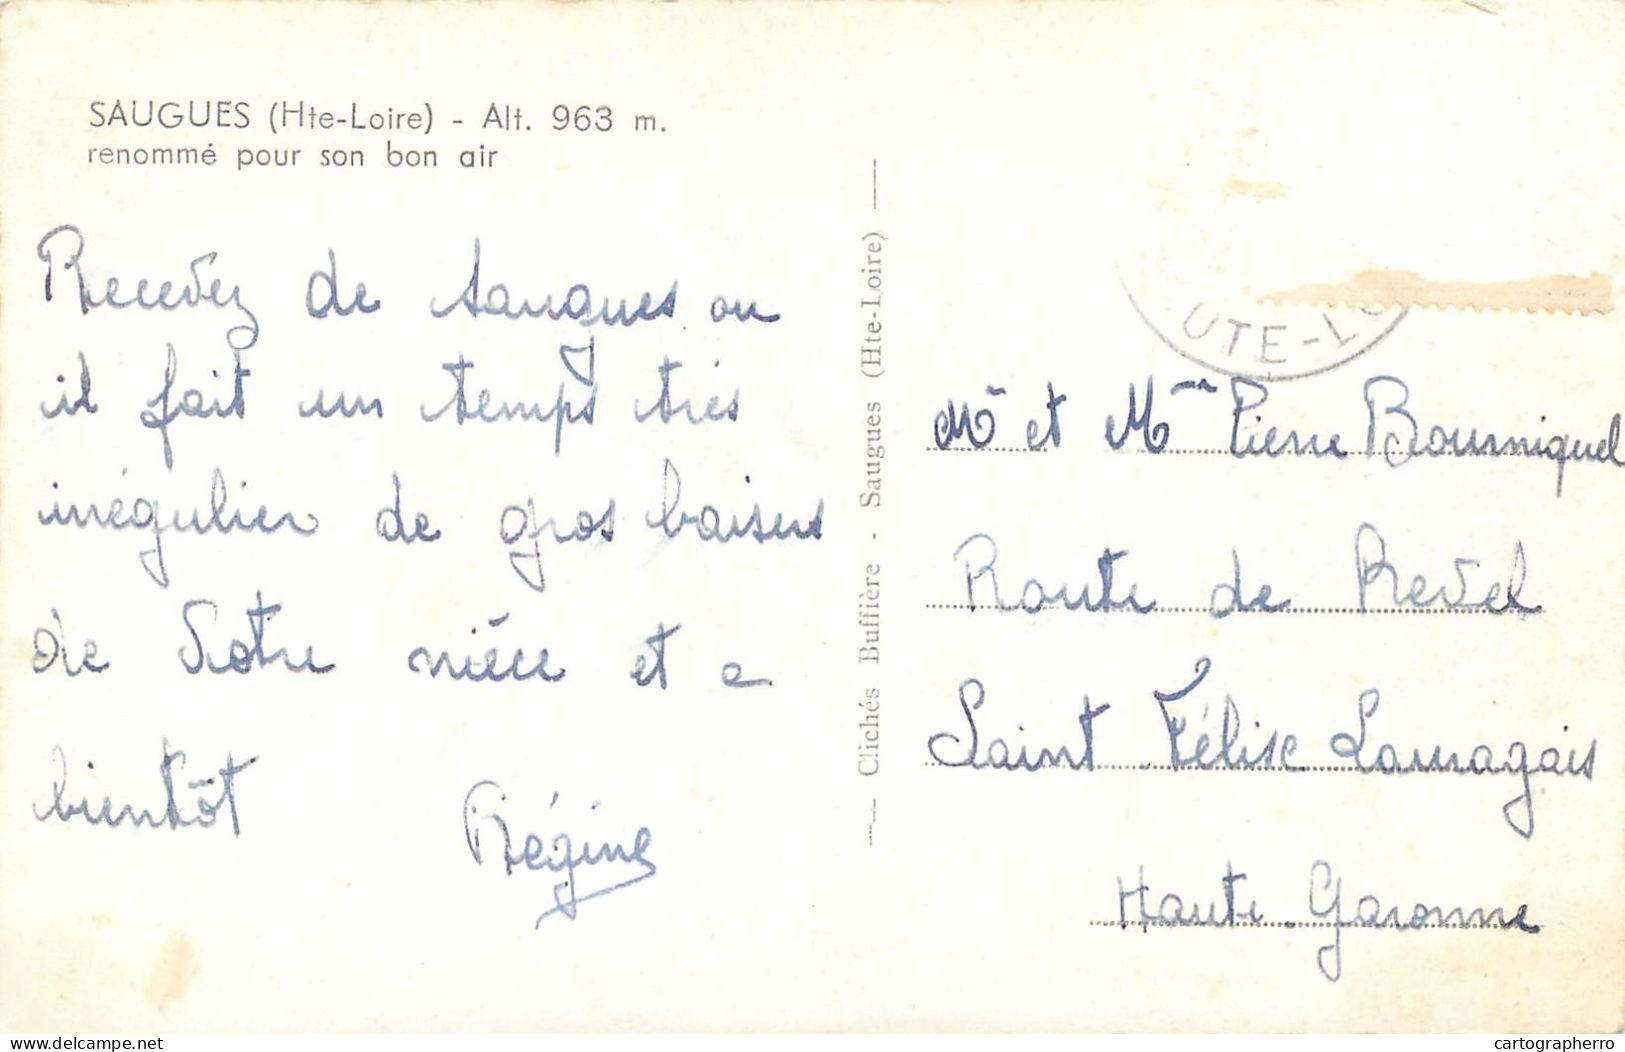 SAUGUES (Hte-Loire) - Alt. 963 m.
renommé pour son bon air
Recevez de Saugues ou
il fait un temps très
irrégulier de gros baisers
de Votre nièce et a
bientôt
Régine
Clichés Buffière - Saugues (Hte-Loire)
UTE-LO
Mr et Mme Pierre Bourniquel
Route de Revel
Saint Félixe Lauragais
Haute-Garonne
delcampe.net
cartographerro